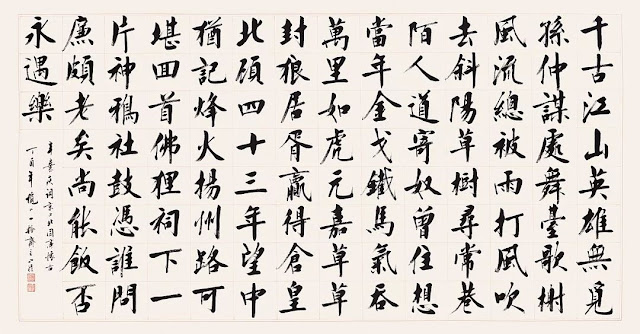 千古江山英雄無覓
孫仲謀處舞臺歌榭
風流總被雨打風吹
去斜陽草樹尋常巷
陌人道寄奴曾住想
當年金戈鐵馬氣吞
萬里如虎元嘉草草
封狼居胥贏得倉皇
北顧四十三年望中
猶記烽火揚州路可
堪回首佛狸祠下一
片神鴉社鼓憑誰問
廉頗老矣尚能飯否
永遇樂
辛棄疾詞京口北固亭懷古
丁酉年